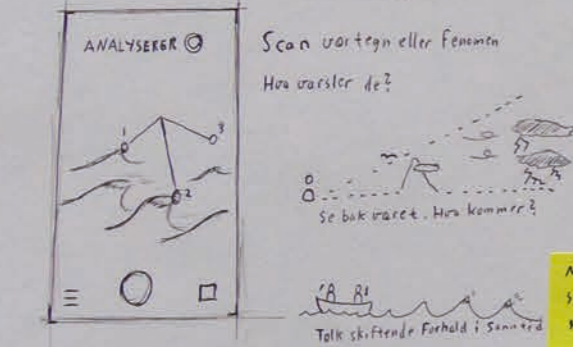 ANALYSERER
1
2
3
Scan vartegn eller fenomen
Hva varsler de?
Se bak været. Hva kommer?
Tolk skiftende forhold i sanntid